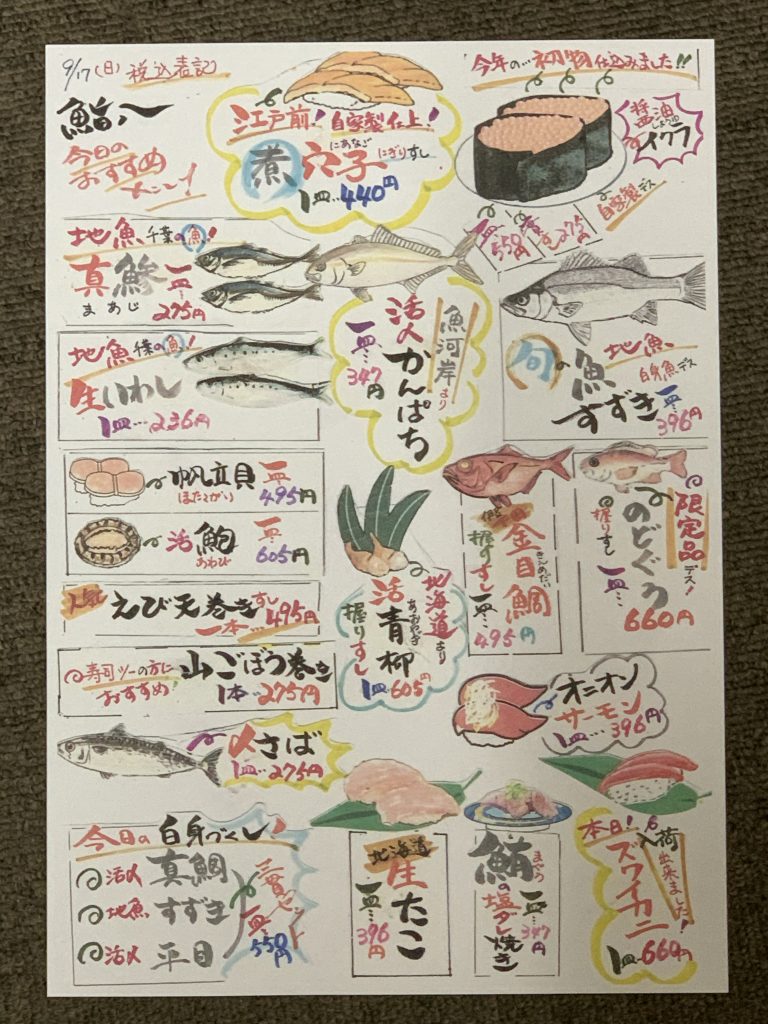 9/17(日) 税込表記
鮨八
今日の
おすすめ
だョ!
江戸前! 自家製仕上!
にあなご
煮穴子 にぎりすし
1皿…440円
今年の…初物仕込みました!!
醤油
しょうゆ
イクラ
自家製デス
一皿…550円
275円
地魚 千葉の魚!
真鯵 一皿…
まあじ 275円
地魚 千葉の魚!
生いわし
1皿…236円
魚河岸より
活〆かんぱち
一皿…347円
旬の地魚
白身魚デス
魚すずき 一皿…
396円
帆立貝 一皿…
ほたてがい 495円
活鮑 一皿…
あわび 605円
人気 えび天巻き すし
一本…495円
寿司ツーの方に
おすすめ!
山ごぼう巻き
1本…275円
北海道より
あおやぎ
活青柳
握りすし
1皿…605円
きんめだい
金目鯛
握りすし 一皿…
495円
限定品デス!
のどぐろ
握りすし 一皿…
660円
オニオン
サーモン
1皿…396円
〆さば
1皿…275円
今日の白身づくし!
活〆 真鯛
地魚 すずき
活〆 平目
三貫セット
一皿…550円
北海道
生たこ
一皿…
396円
まぐろ
鮪の塩ダレ焼き
一皿…
347円
本日!入荷出来ました!
ズワイカニ
1皿…660円